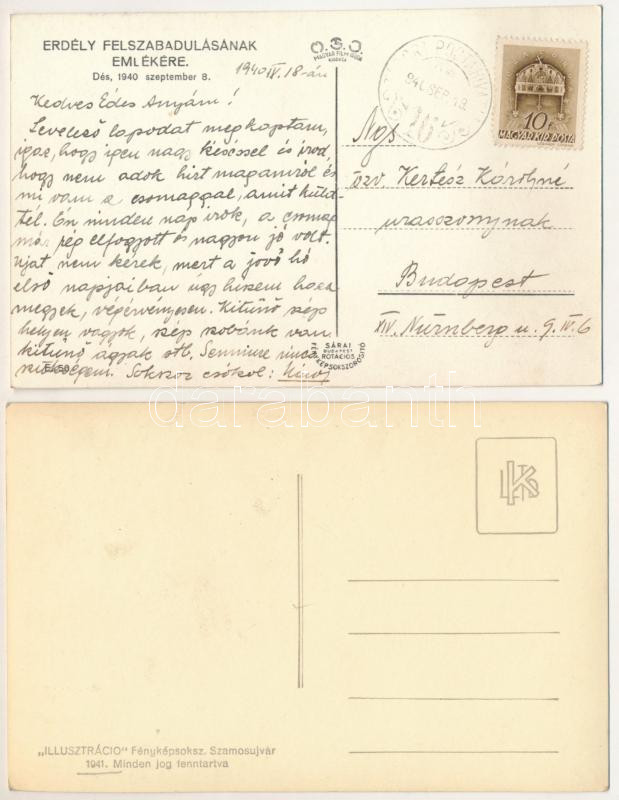 ERDÉLY FELSZABADULÁSÁNAK
EMLÉKÉRE.
Dés, 1940 szeptember 8.
O.S.O.
MAGYAR FILM IRODA
1940 IV. 18-án
Kedves Édes Anyám!
Levelező lapodat megkaptam,
igaz, hogy igen nagy késéssel és írod,
hogy nem adok hírt magamról és
mi van a csomaggal, amit küld-
tél. Én minden nap írok, a csomag
már rég elfogyott és nagyon jó volt.
Újat nem kérek, mert a jövő hó
első napjaiban úgy hiszem haza
megyek, végérvényesen. Kitűnő szép
helyen vagyok, szép szobánk van
kitűnő ágyak stb. Semmire nincs
szükségem. Sokszor csókol:
SÁRAI
BUDAPEST
ROTACIOS
FÉNYKÉPSOKSZOROSITÓ
10f
MAGYAR KIR. POSTA
Ngs
özv. Kertész Károlyné
urasszonynak
Budapest
XIV. Nürnberg u. 9. IV. 6
darabanth
„ILLUSZTRÁCIO" Fényképsoksz. Szamosujvár
1941. Minden jog fenntartva